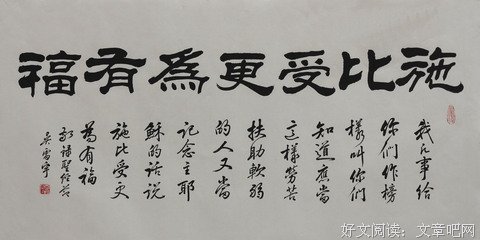 施比受更為有福
我凡事給
你們作榜
樣叫你們
知道應當
這樣勞苦
扶助軟弱
的人又當
記念主耶
穌的話說
施比受更
為有福
聖經
好文阅读：文章吧网